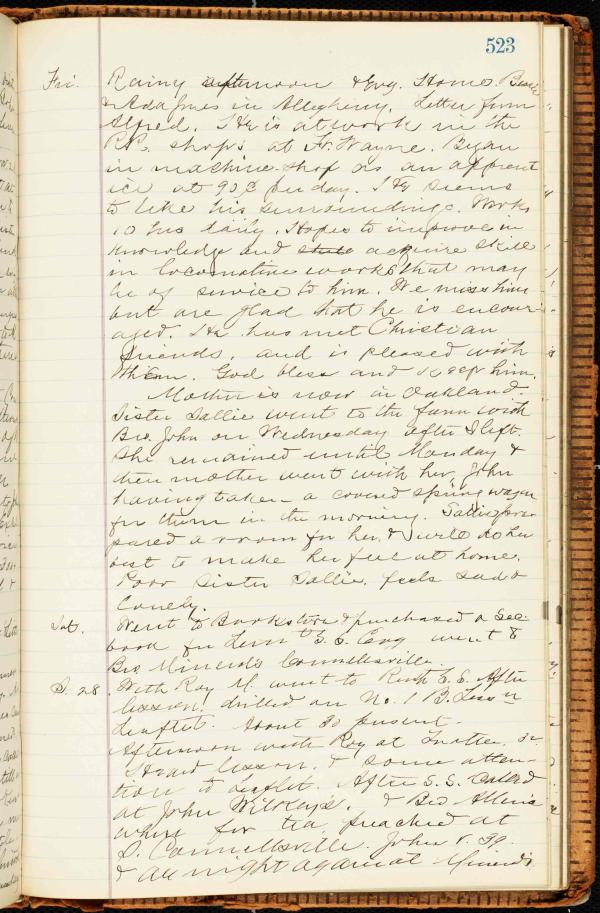 523
Fri. Rainy afternoon & Evg. Home.
& Ada Jones in Allegheny. Letter from
Alfred. He is at work in the
RR. shops at Ft. Wayne. Began
in machine shop as an apprent
ice at 90¢ per day. He seems
to like his surroundings. Works
10 hrs daily. Hopes to improve in
knowledge and acquire skill
in locomotive works that may
be of service to him. We miss him
but are glad that he is encour
aged. He has met Christian
friends, and is pleased with
them. God bless and keep him.
Mother is now in Oakland.
Sister Sallie went to the farm with
Bro. John on Wednesday after I left.
She remained until Monday &
then mother went with her, John
having taken a covered spring wagon
for them in the morning. Sallie pre
pared a room for her, & will do her
best to make her feel at home.
Poor Sister Sallie, feels sad &
lonely.
Sat. Went to Bookstore & purchased a Sec.
book for S.S. Evg went to
Bro Minerd's Connellsville.
S. 28. With Ray M. went to S.S. After
lesson, drilled on No. 1 B. Lesson
leaflets. About 80 present.
Afternoon with Ray at Trotter.
Heard lesson, & some atten-
tion to leaflet. After S.S. Called
at John & Bro Allen's
where for tea preached at
S. Connellsville. John V. 39.
& all night again at Minerd's